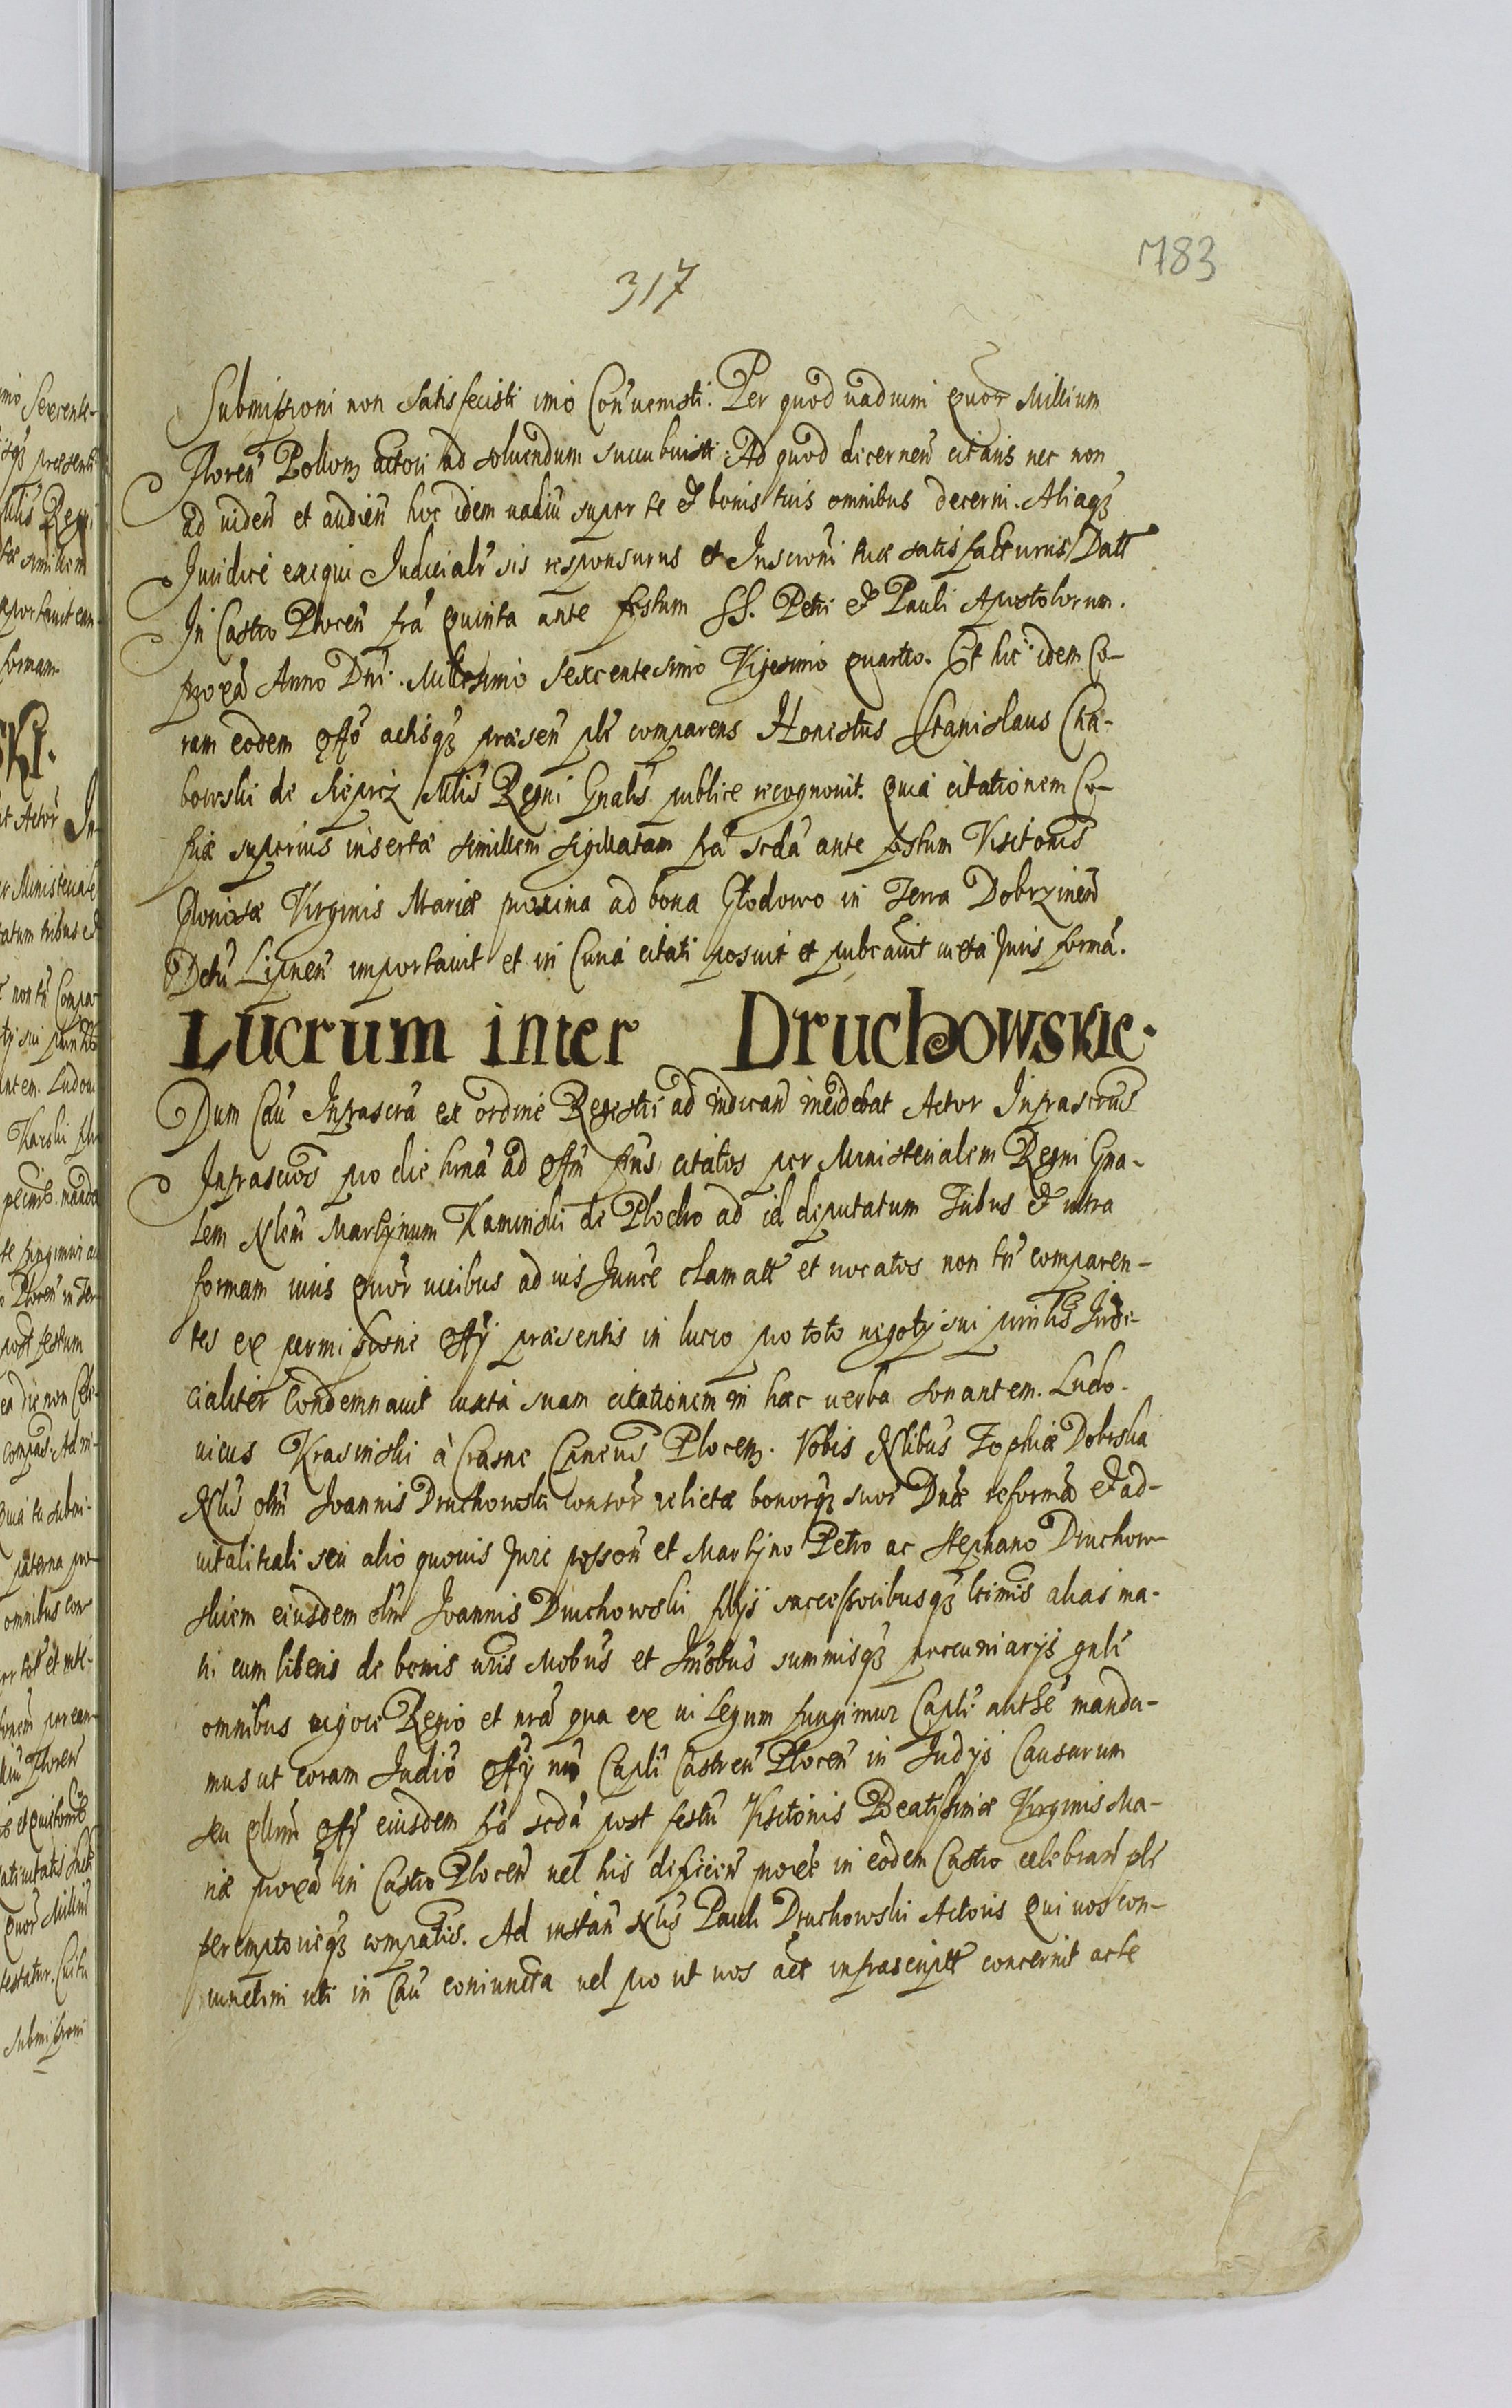 783
317
Submissioni non satisfecisti imo Contrauenisti. Per quod uadium quor Millium
Floren Pollon actori ad soluendum succubuisti. Ad quod dicernen citaris nec non
ad uiden et audien hoc idem uadiu super te et bonis tuis omnibus decerni. Aliaqz
Iuridice exequi Iudicialr sis responsurus et Inscroni tuæ satisfacturus Datt
In Castro Plocen fra quinta ante festum SS. Petri et Pauli Apostolorum.
proxa Anno Dni. Millesimo Sexcentesimo Vigesimo quarto. Et hic idem Co-
ram eodem Offo actisqz præsen plr comparens Honestus Stanislaus Chà-
bowski de Mlis Regni Gnalis publice recognouit. Quia citationem Co-
piæ superius insertæ similem sigillatam fra scda ante festum Visitonis
Gloriosæ Virginis Mariæ proxima ad bona Głodowo in Terra Dobrzinen
Dctu Lipnen importauit et in Curia citati posuit et publcauit iuxta Juris forma.
Lucrum inter Druchowskie.
Dum Cau Infrascra ex ordine Regestri ad iudican incidebat Actor Infrascrus
Infrascros pro die hrna ad Offm prns citatos per Ministerialem Regni Gna-
lem Nlem Martinum Kaminski de Plocko ad id deputatum Tribus et ultra
formam iuris quor uicibus ad iis Iurce clamatt et uocatos non tn comparen-
tes ex permissione Offy præsentis in lucro pro toto negoty sui purilis Iudi-
cialiter Condemnauit iuxta suam citationem in hæc uerba sonantem. Ludo-
uicus Krasinski à Crasne Caneus Plocen. Vobis Nlibus Zophiæ Dobrska
Nlis olm Joannis Druchowski consor relictæ bonorqz suor Dnæ reforma et ad-
uitalitiali seu alio quouis Jure posson et Martino Petro ac Stephano Druchow-
skiem eiusdem olm Joannis Druchowski filijs successoribusqz ltimis alias ma-
tri cum liberis de bonis uris Mobus et Imobus summisqz pecuniarijs gnlr
omnibus uigore Regio et nra qua ex ui legum fungimur Capli authe manda-
mus ut coram Iudio Offy nro Capli Castren Plocen in Iudijs Causarum
seu Offy eiusdem fra scda post festu Visitonis Beatissimæ Virginis Ma-
riæ proxa in Castro Plocen uel his deficien proxe in eodem Castro celebran plr
peremptorieqz compatis. Ad instan Nlis Pauli Druchowski Actoris Qui uos con-
iunctim uti in Cau coniuncta uel pro ut uos act infrascriptt concernit acte